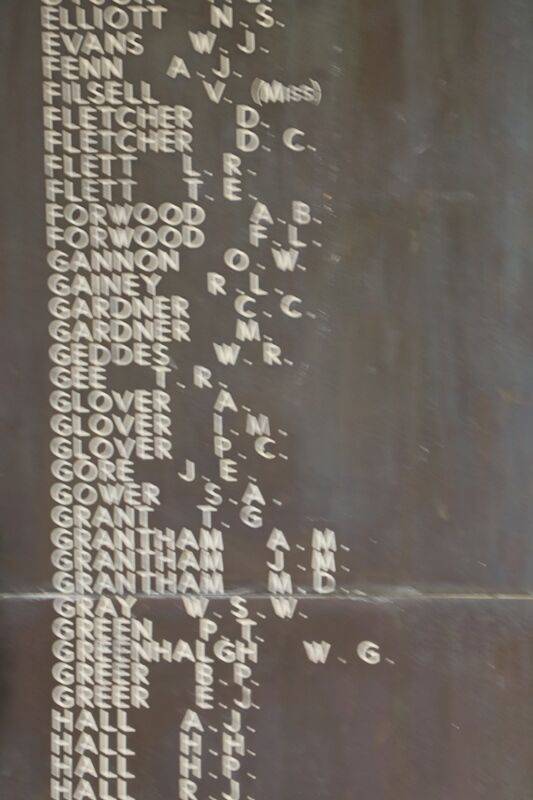 ELLIOTT N.S.
EVANS W.J.
FENN A.J.
FILSELL V. (MISS)
FLETCHER D.
FLETCHER D.C.
FLETT L.R.
FLETT T.E.
FORWOOD A.B.
FORWOOD F.L.
GANNON O.W.
GAINEY R.L.
GARDNER C.C.
GARDNER M.
GEDDES W.R.
GEE T.R.
GLOVER A.
GLOVER I.M.
GLOVER P.C.
GORE J.E.
GOWER S.A.
GRANT T.G
GRANTHAM A.M.
GRANTHAM J.M.
GRANTHAM M.D.
GRAY W.S.W.
GREEN P.T.
GREENHALGH W.G.
GREER B.P.
GREER E.J.
HALL A.J.
HALL H.H.
HALL H.P.
HALL R.J.